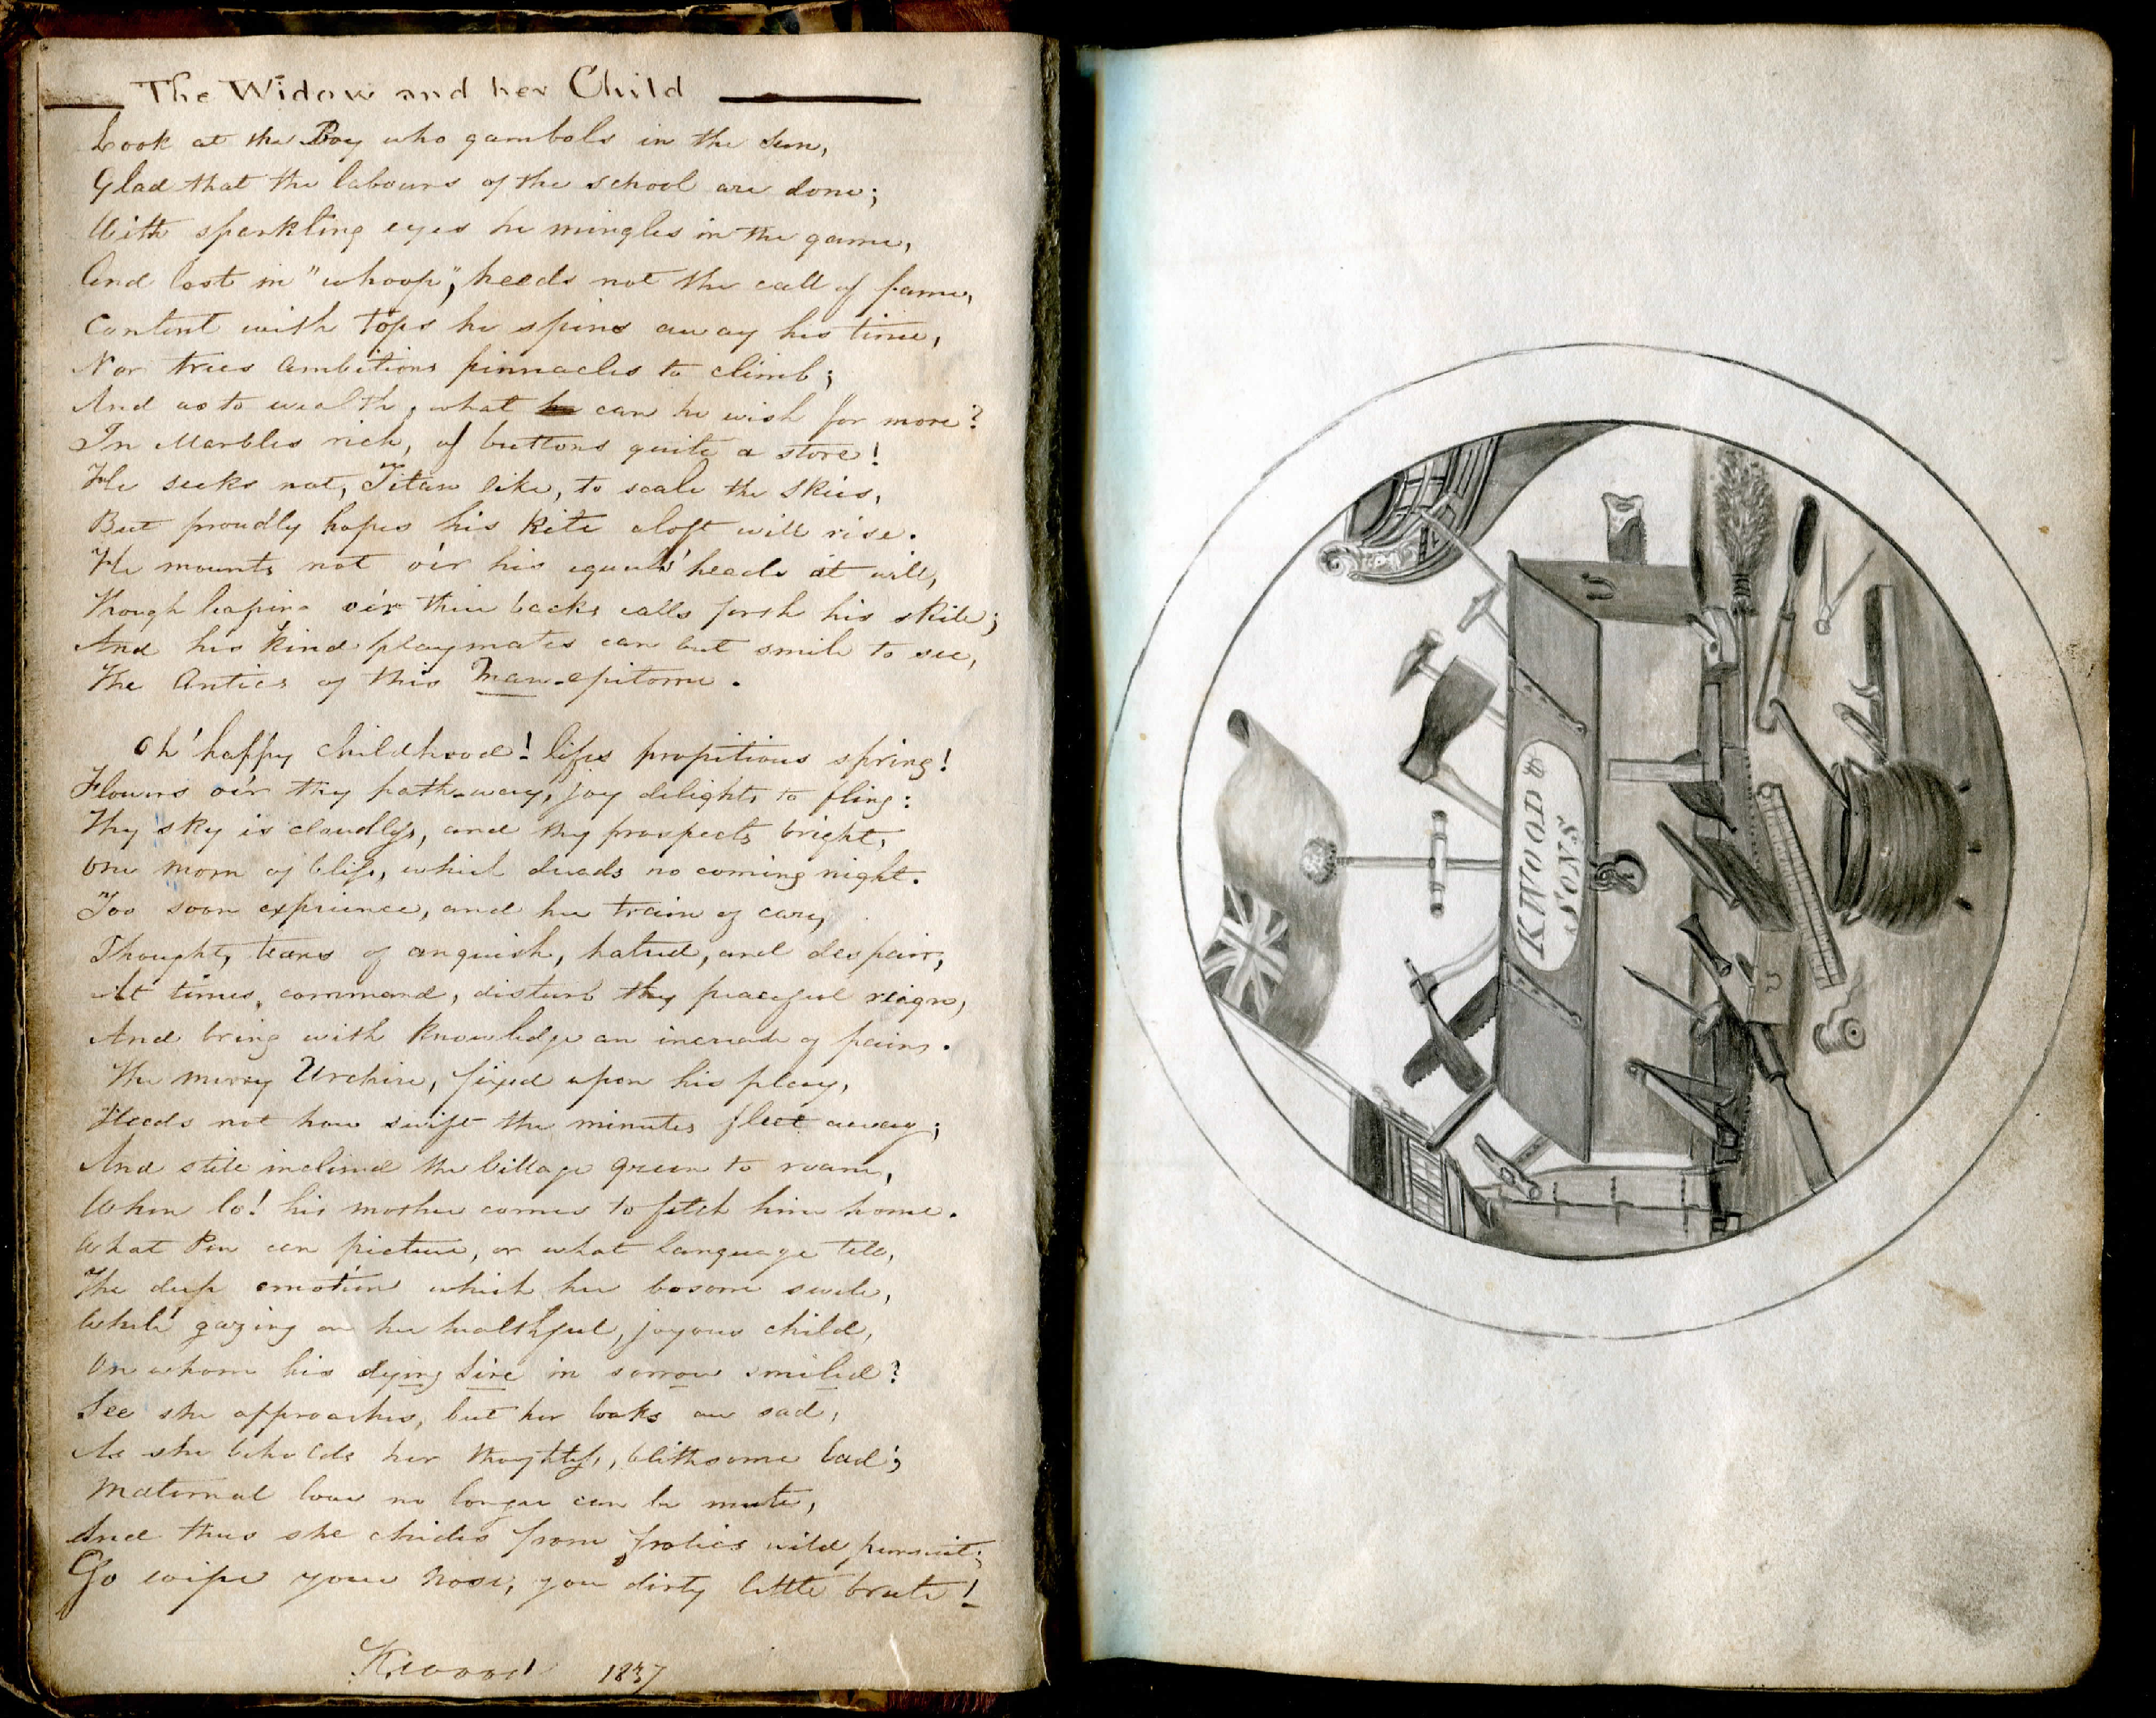 The Widow and her Child
Look at the Boy who gambols in the sun,
Glad that the labours of the school are done;
With sparkling eyes he mingles in the game,
And lost in "whoop", heeds not the call of fame,
Content with tops he spins away his time,
Nor tries ambitions pinnacles to climb;
And as to wealth, what can he wish for more?
In Marbles rich, of buttons quite a store!
He seeks not, Titan like, to scale the skies,
But proudly hopes his kite aloft will rise.
He mounts not o'er his equals' heads at will,
Though leaping o'er their backs calls forth his skill;
And his kind playmates can but smile to see,
The Antics of this Man-epitome.
Oh' happy childhood! lifes propitious spring!
Flowers o'er thy path-way, joy delights to fling:
Thy sky is cloudless, and thy prospects bright,
One morn of bliss, which dreads no coming night.
Too soon experience, and her train of care,
Thought, tears of anguish, hatred, and despair,
At times, command, disturb thy peaceful reign,
And bring with knowledge an increase of pains.
The merry Urchin, fixed upon his play,
Heeds not how swift the minutes fleet away;
And still inclined the village green to roam,
When lo! his mother comes to fetch him home.
What Pen can picture, or what language tell,
The deep emotion which her bosom swell,
While gazing on her healthful, joyous child,
On whom his dying Sire in sorrow smiled?
See she approaches, but her looks are sad,
As she beholds her thoughtless, blithsome lad;
Maternal love no longer can be mute,
And thus she chides from frolics wild pursuit;
Go wipe your Nose, you dirty little brute!
Kwood 1837
KWOOD &
SONS